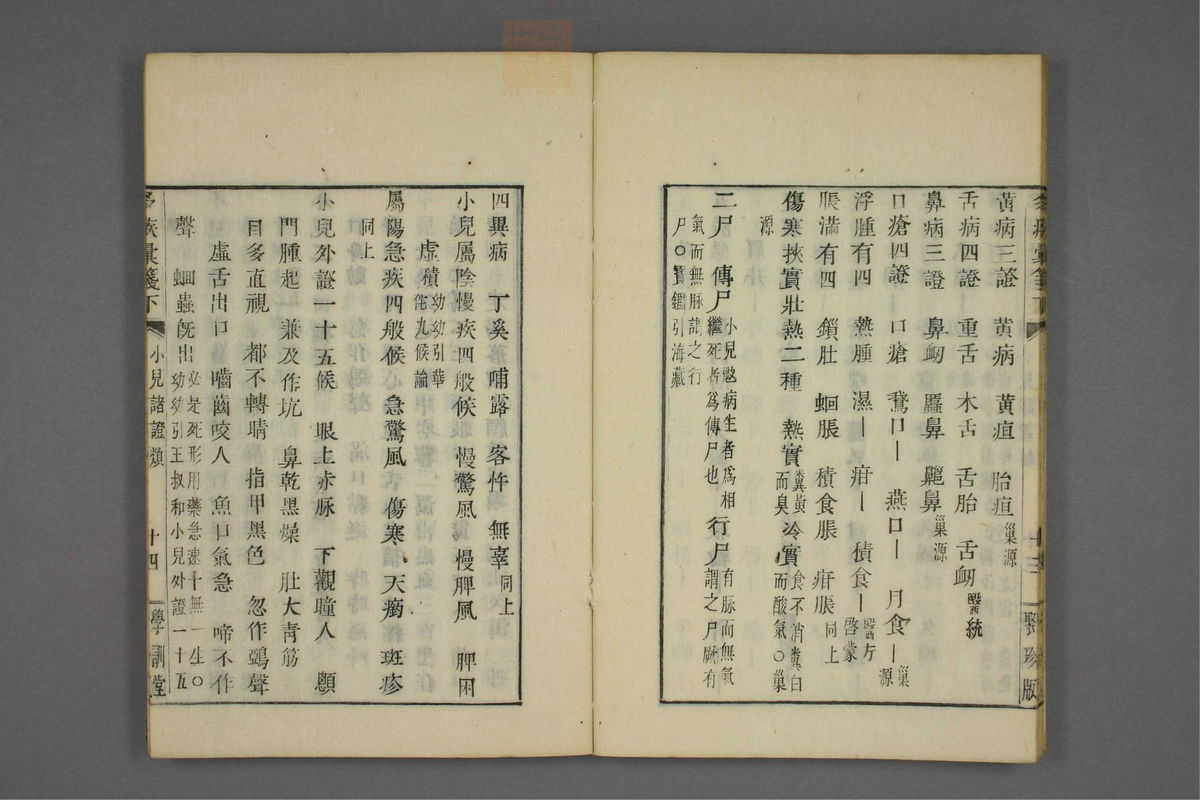 黃病三證　黃病　黃疸　胎疸巢源
舌病四證　重舌　木舌　舌胎　舌衄醫統
鼻病三證　鼻衄　齆鼻　齇鼻巢源
口瘡四證　口瘡　鵞口｜　燕口｜　月食｜巢源
浮腫有四　熱腫　濕｜　疳｜　積食｜醫方啓蒙
脹滿有四　鎖肚　蛔脹　積食脹　疳脹同上
傷寒挾實壯熱二種　熱實糞黃而臭　冷實食不消糞白而酸氣〇巢
源
二尸　傳尸小兒病生者爲相繼死者爲傳尸也　行尸有脉而無氣謂之尸厥有
氣而無脉謂之行尸〇寶鑑引海藏
十三
聚珍版
四異病　丁奚　哺露　客忤　無辜同上
小兒屬陰慢疾四般候　慢驚風　慢脾風　脾困
虛積幼幼引華佗九候論
屬陽急疾四般候　急驚風　傷寒　天瘹　斑疹
同上
小兒外證一十五候　眼上赤脉　下觀瞳人　顖
門腫起　兼及作坑　鼻乾黑燥　肚大青筋
目多直視　都不轉睛　指甲黑色　忽作鵶聲
虛舌出口　嚙齒咬人　魚口氣急　啼不作
聲　蛔蟲旣出必是死形用藥急速十無一生〇幼幼引王叔和小兒外證一十五
彙箋下
小兒諸證類
十四
學訓堂